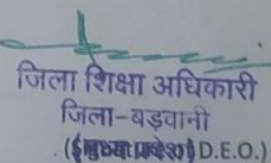 जिला शिक्षा अधिकारी
जिला-बड़वानी
D.E.O.)